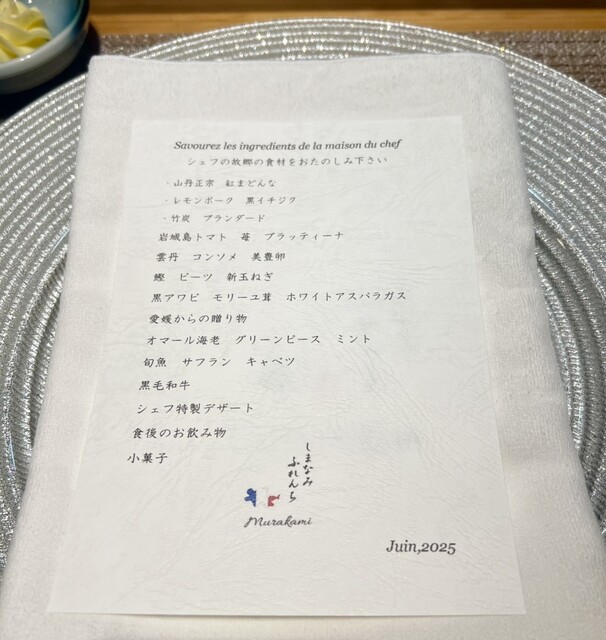 Savourez les ingredients de la maison du chef
シェフの故郷の食材をおたのしみ下さい
・山丹正宗　紅まどんな
・レモンポーク　黒イチジク
・竹炭　ブランダード
岩城島トマト　苺　ブラッティーナ
雲丹　コンソメ　美豊卵
鰹　ビーツ　新玉ねぎ
黒アワビ　モリーユ茸　ホワイトアスパラガス
愛媛からの贈り物
オマール海老　グリーンピース　ミント
旬魚　サフラン　キャベツ
黒毛和牛
シェフ特製デザート
食後のお飲み物
小菓子
しまなみ
ふれんち
Murakami
Juin,2025